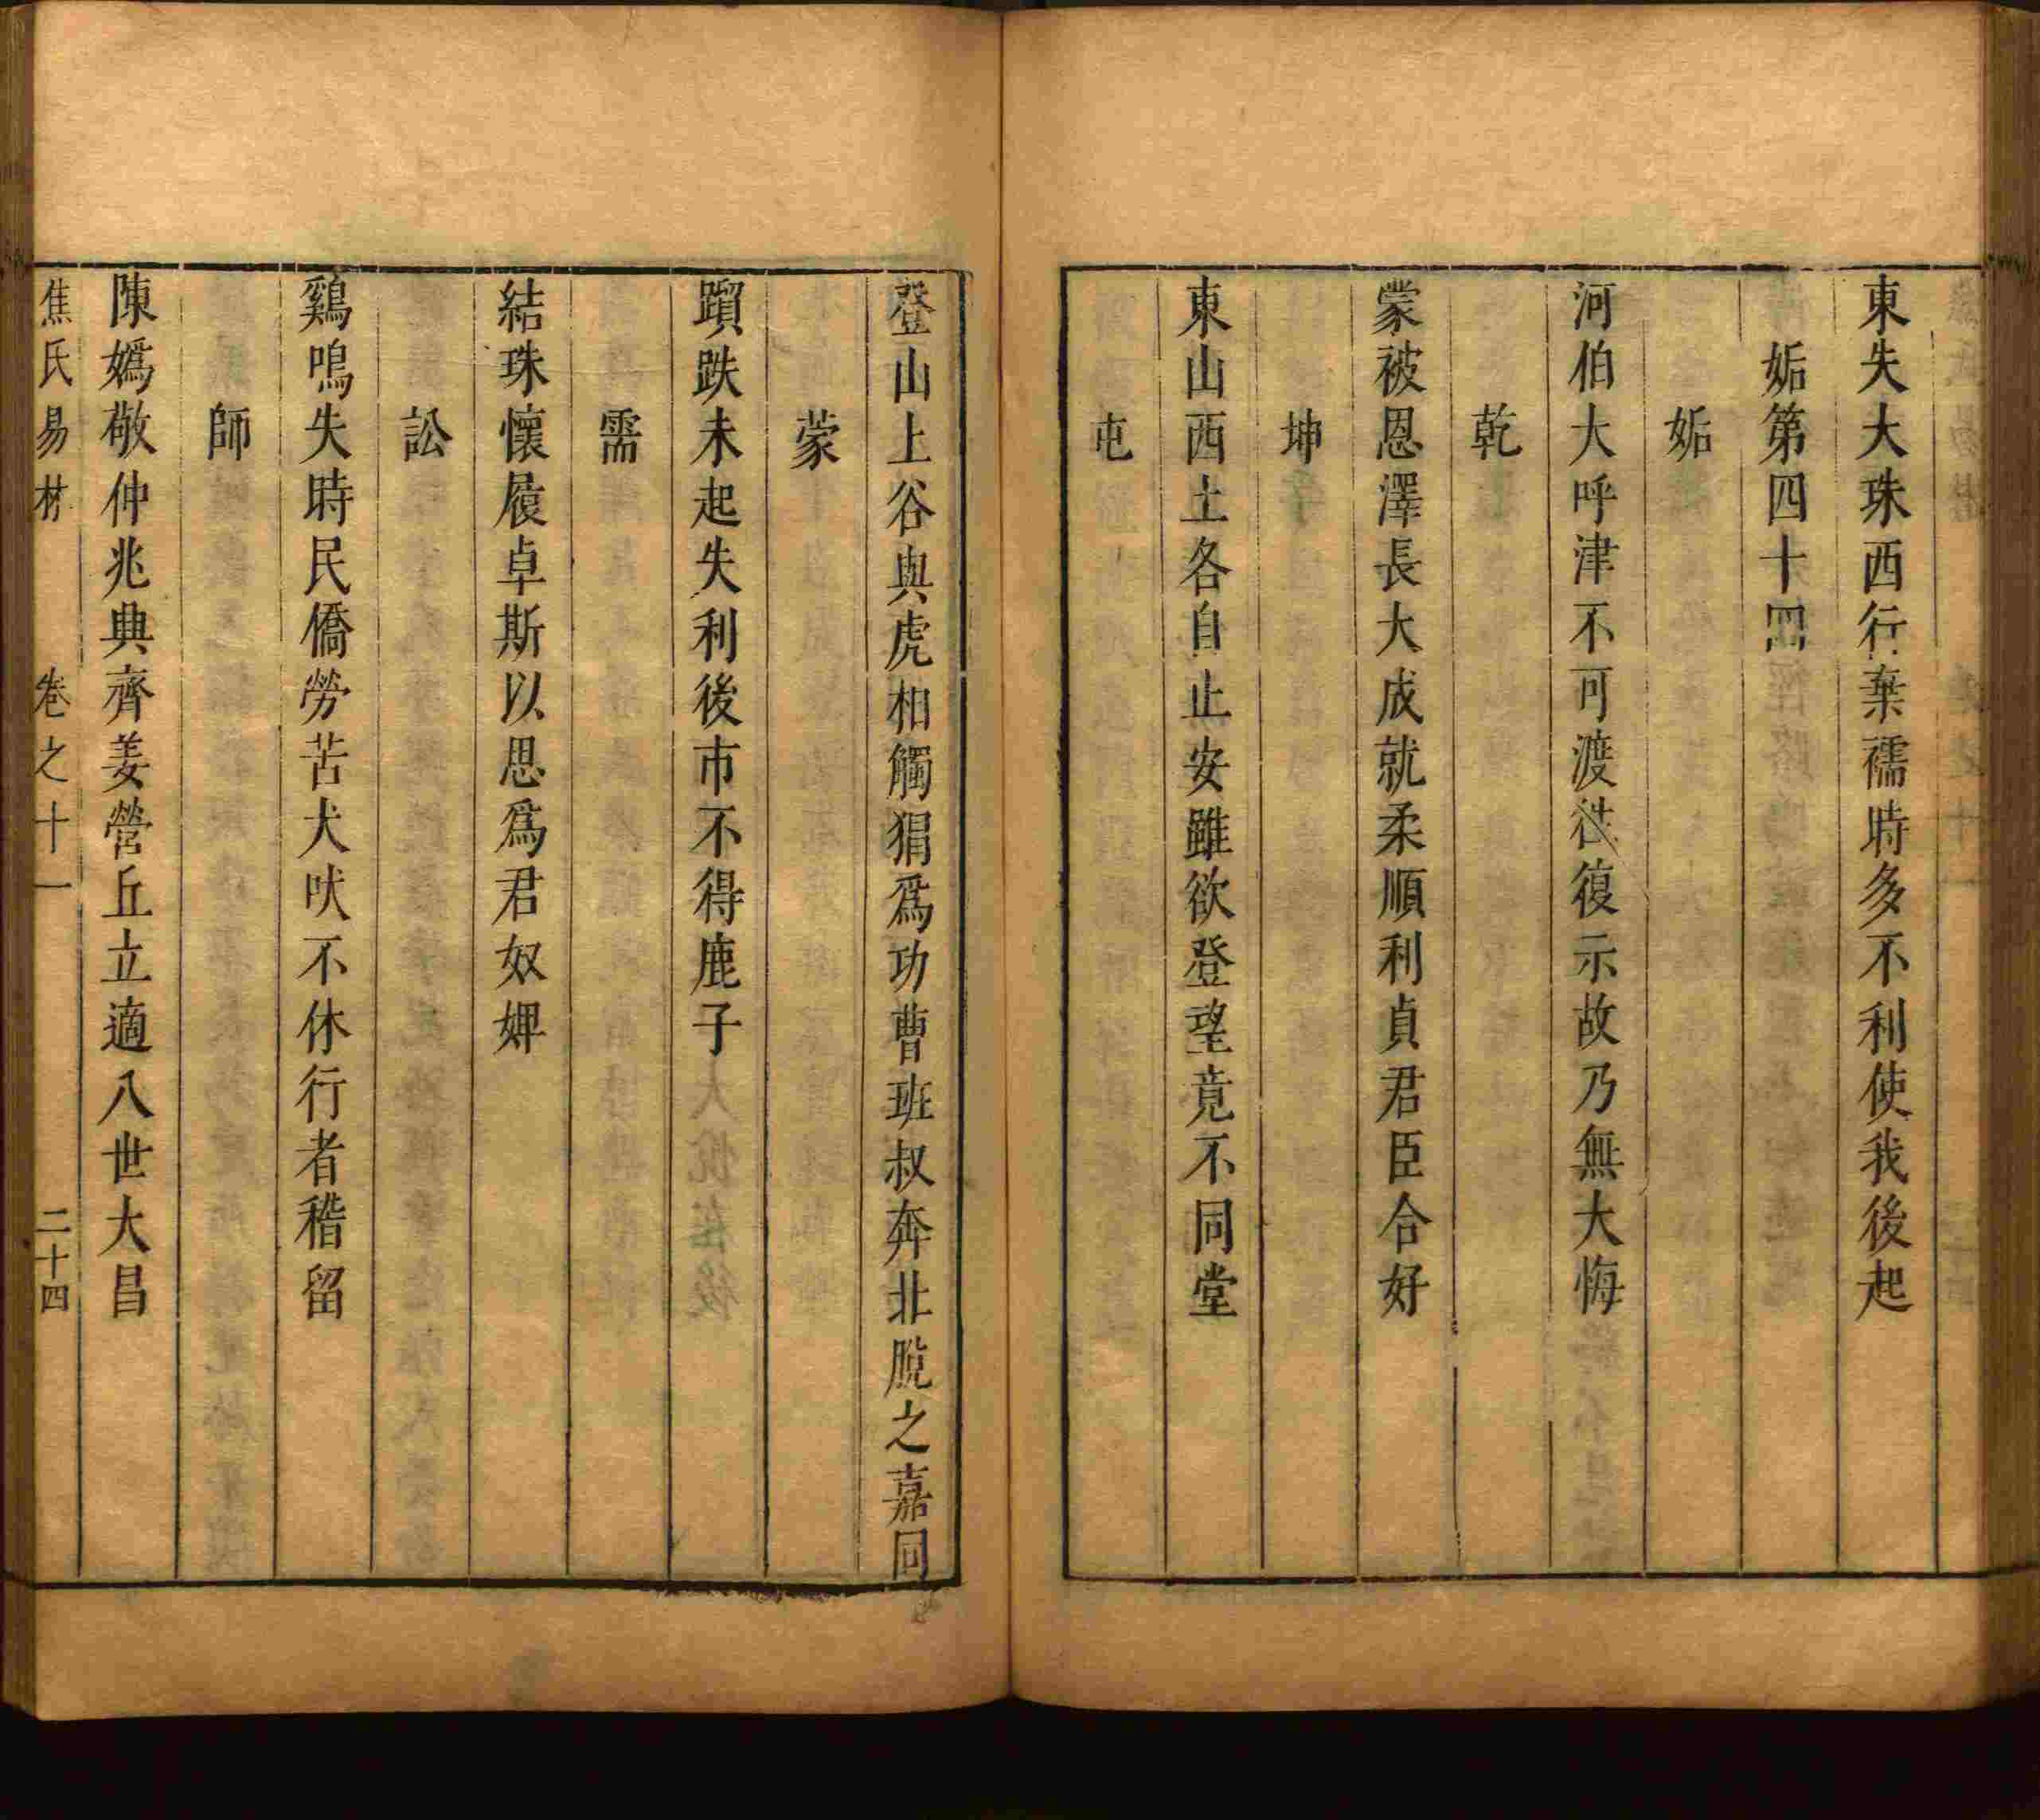 東失大珠西行棄襦時多不利使我後起
姤第四十四
姤
河伯大呼津不可渡往復示故乃無大悔
乾
蒙被恩澤長大成就柔順利貞君臣合好
坤
東山西土各自止安雖欲登望竟不同堂
屯
登山上谷與虎相觸狷爲功曹班叔奔北脫之嘉同
蒙
躓跌未起失利後市不得鹿子
需
結珠懷履卓斯以思爲君奴婢
訟
鷄鳴失時民僑勞苦犬吠不休行者稽留
師
陳嬀敬仲兆典齊姜營丘立適八世大昌
焦氏易林 卷之十一 二十四